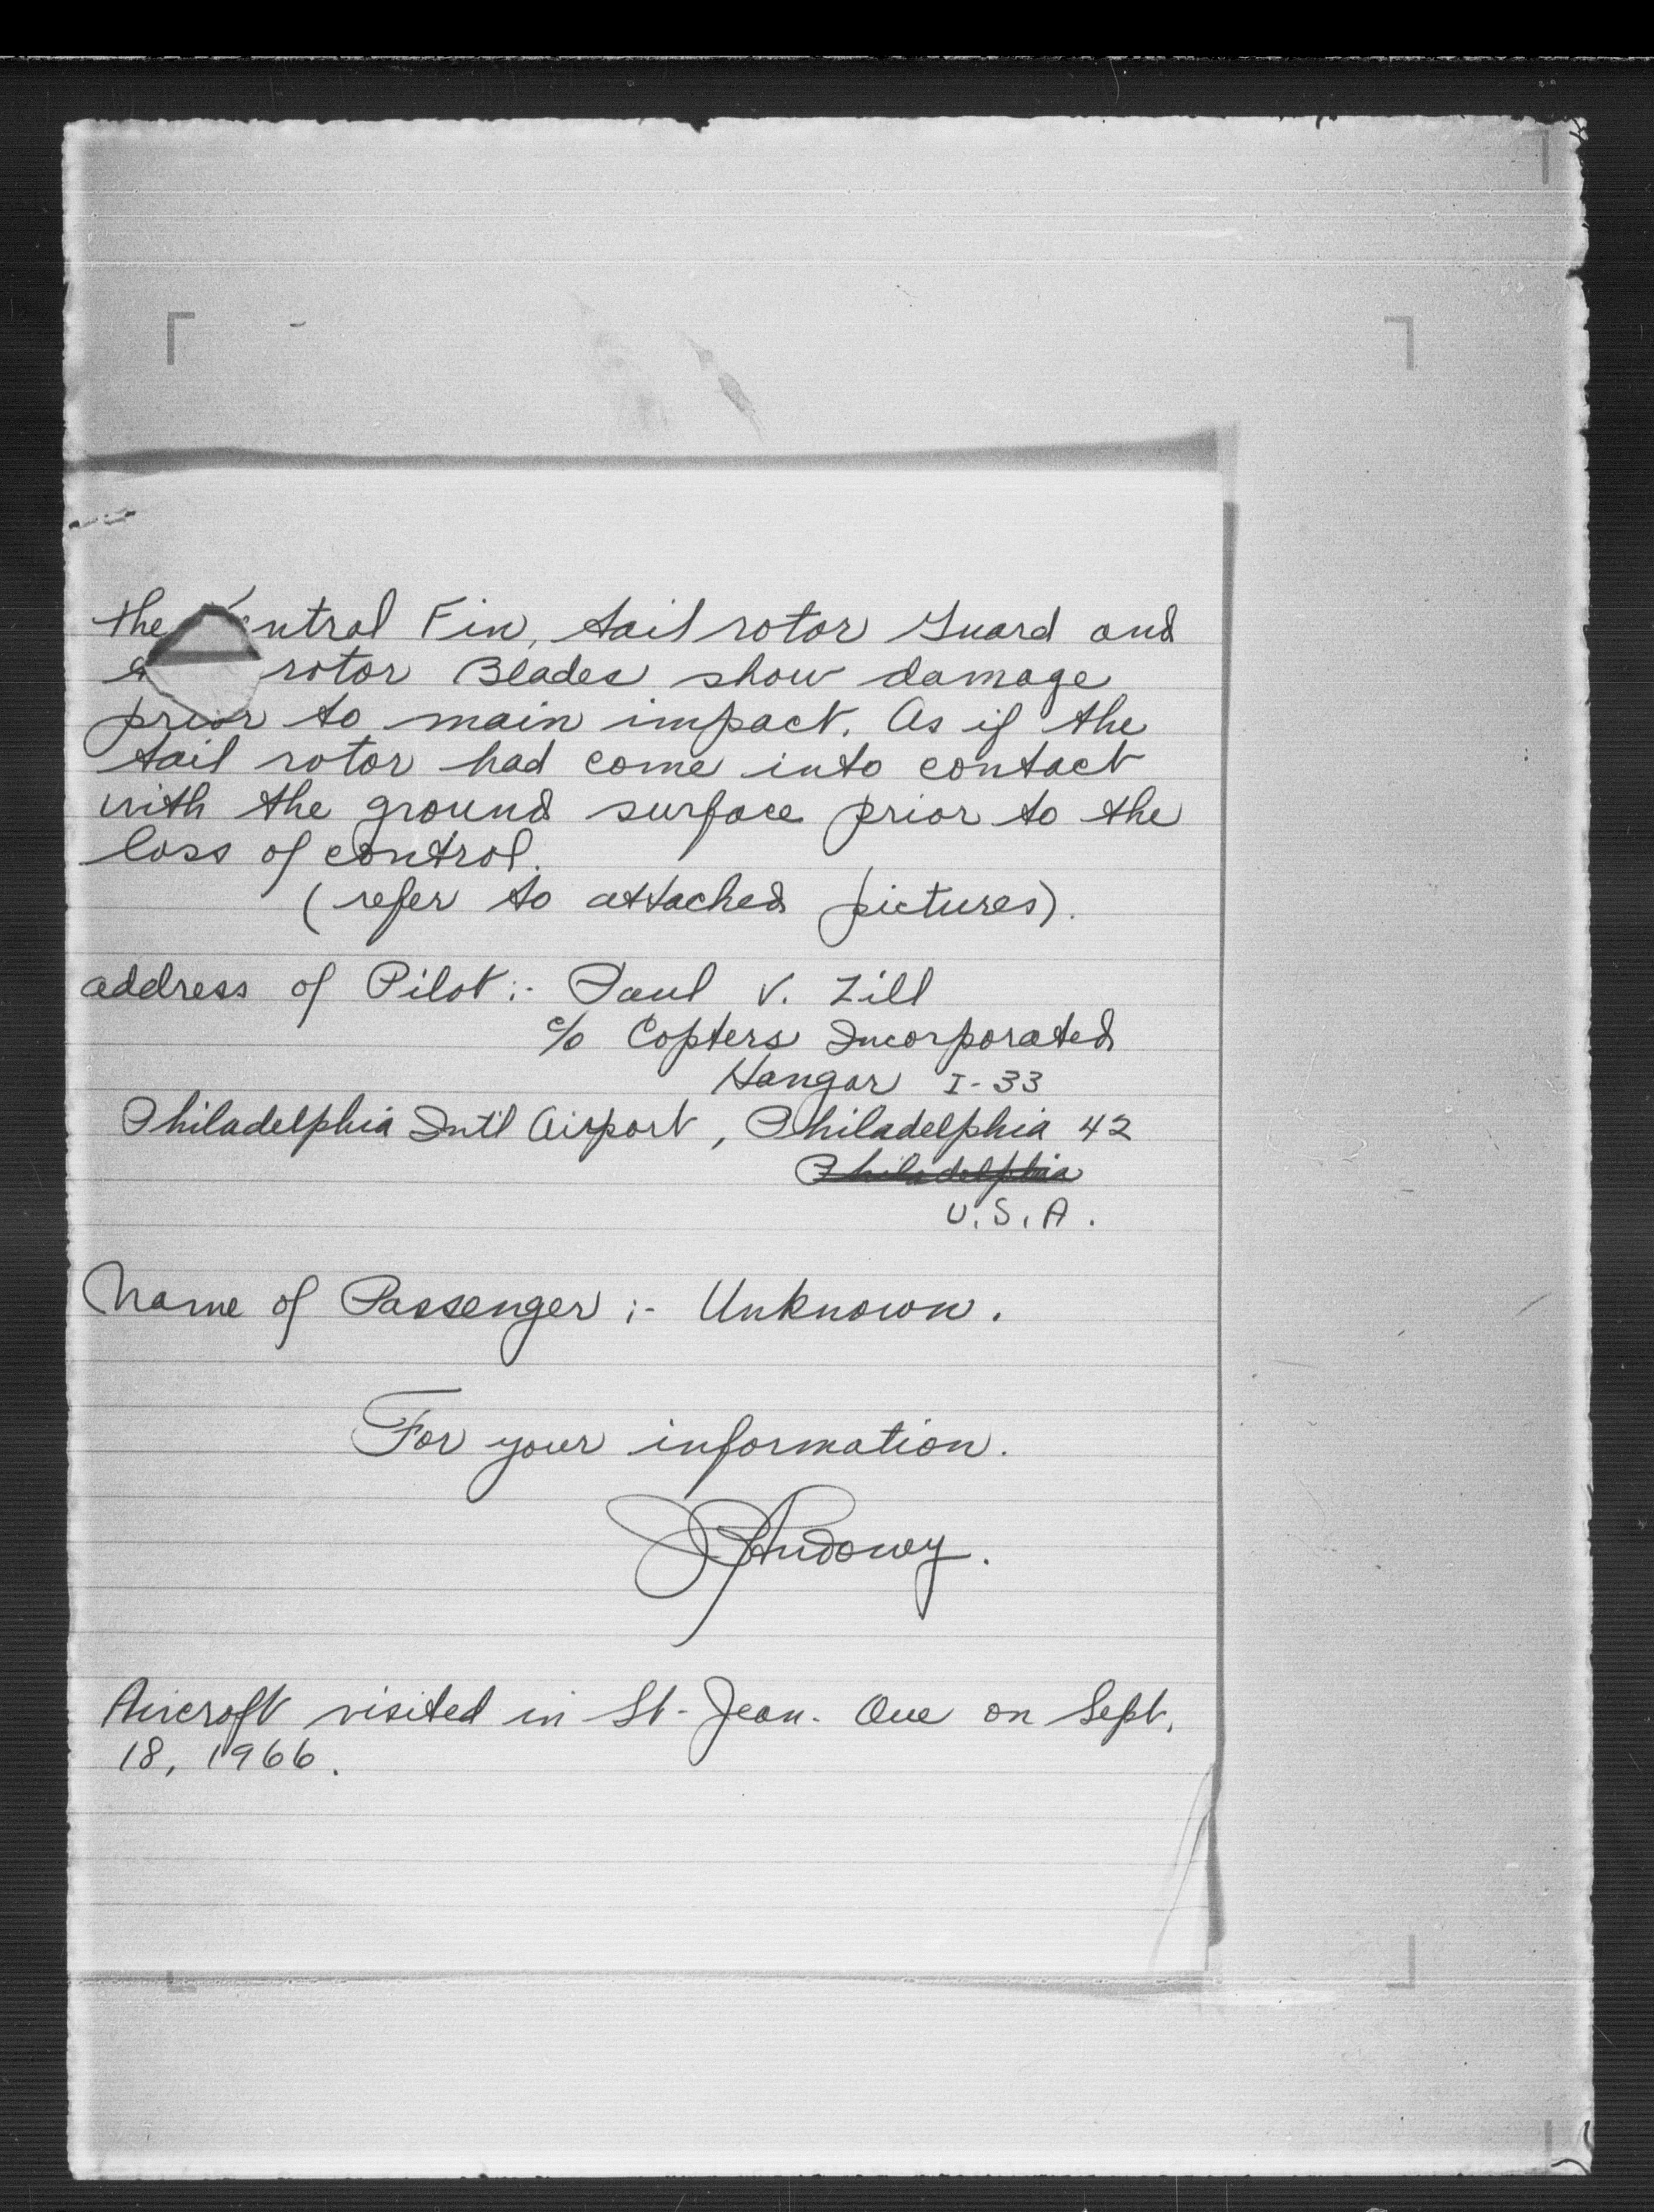 the ventral Fin, tail rotor Guard and
rotor Blades show damage
prior to main impact. As if the
tail rotor had come into contact
with the ground surface prior to the
loss of control.
(refer to attached pictures).
address of Pilot :- Paul V. Zill
c/o Copters Incorporated
Hangar I-33
Philadelphia Int'l Airport, Philadelphia 42
Philadelphia
U.S.A.
Name of Passenger :- Unknown.
For your information.
Aircraft visited in St-Jean. Que on Sept.
18, 1966.